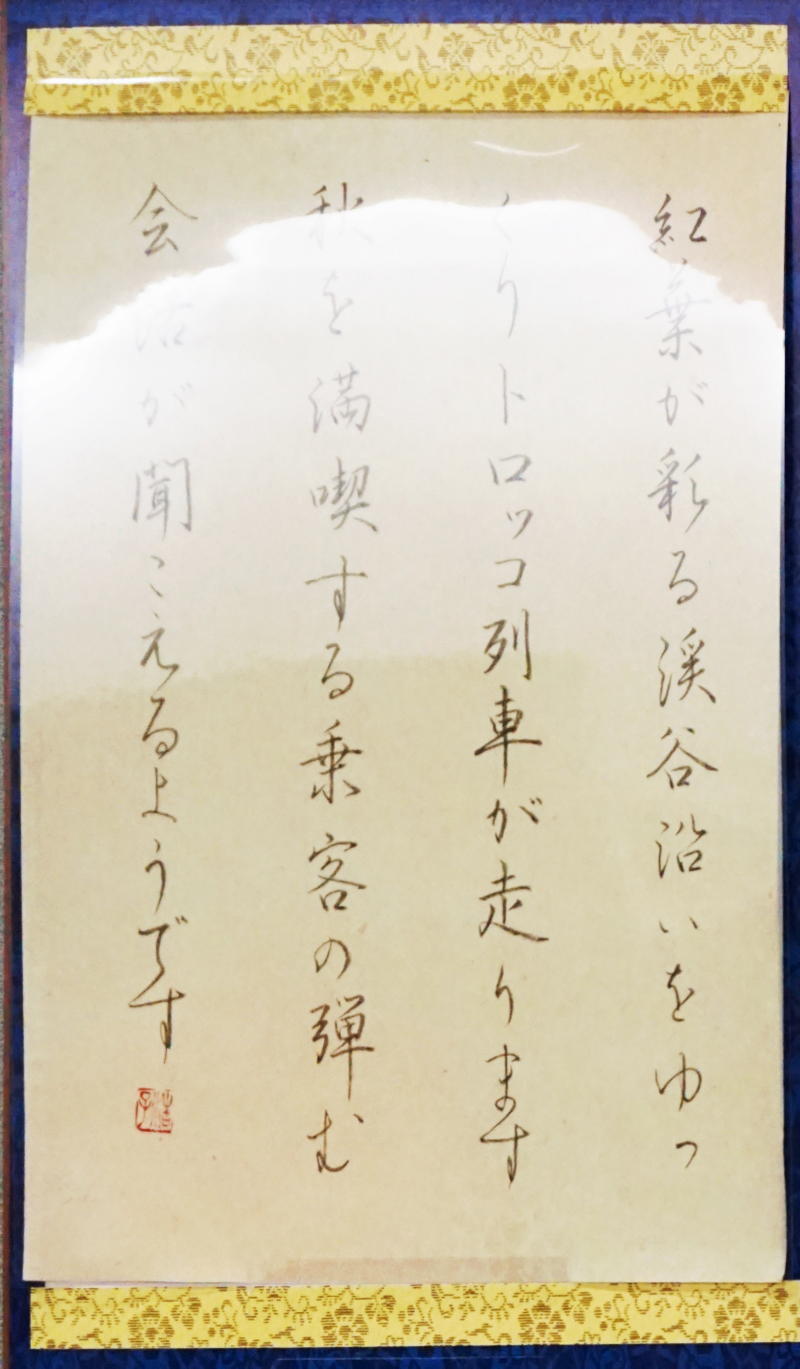 紅葉が彩る渓谷沿いをゆっ
くりトロッコ列車が走ります
秋を満喫する乗客の弾む
会話が聞こえるようです